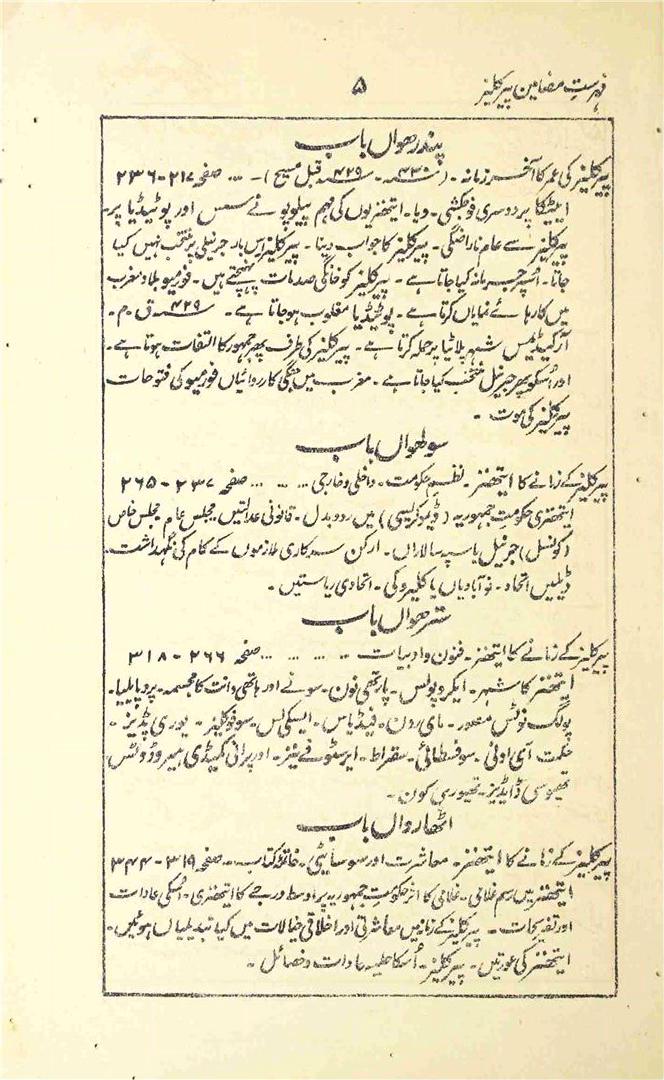 فہرستِ مضامین پیرکلیز
۵
پندرھواں باب
پیرکلیز کی عمر کا آخر زمانہ۔ (۴۳۰۔ ۴۲۹ قبل مسیح)۔ ... صفحہ ۲۱۷-۲۳۶
ایٹیکا پر دوسری فوجکشی۔ وبا۔ ایتھنزیوں کی مہم پیلوپونے سس اور پوٹیڈیا پر۔
پیرکلیز سے عام ناراضگی۔ پیرکلیز کا جواب دینا۔ پیرکلیز اس بار جرنیلی پر منتخب نہیں کیا
جاتا۔ اُسپر جرمانہ کیا جاتا ہے۔ پیرکلیز کو خانگی صدمات پہنچتے ہیں۔ فورمیو بلاد مغرب
میں کارہائے نمایاں کرتا ہے۔ پوٹیڈیا مغلوب ہو جاتا ہے۔ ۴۲۹ ق۔م۔
آرکیڈیمس شہر پلاٹیا پر حملہ کرتا ہے۔ پیرکلیز کی طرف پھر جمہور کا التفات ہوتا ہے۔
اور اُسکو پھر جنرل منتخب کیا جاتا ہے۔ مغرب میں جنگی کارروائیاں فورمیو کی فتوحات
پیرکلیز کی موت۔
سولھواں باب
پیرکلیز کے زمانے کا ایتھنز۔ نظم حکومت۔ داخلی و خارجی ... ... ... صفحہ ۲۳۷-۲۶۵
ایتھنزی حکومت جمہوریہ (ڈیموکریسی) میں ردوبدل۔ قانونی عدالتیں مجلس عام۔ مجلس خاص
(کونسل) جرنیل یا سپہ سالاراں۔ ارکن سرکاری ملازموں کے کام کی نگہداشت۔
ڈیلیں اتحاد۔ نوآبادیاں یا کلیروکی۔ اتحادی ریاستیں۔
سترھواں باب
پیرکلیز کے زمانے کا ایتھنز۔ فنون و ادبیات ... ... ... صفحہ ۲۶۶-۳۱۸
ایتھنز کا شہر۔ ایکروپولس۔ پارتھی نون۔ سونے اور ہاتھی دانت کا مجسمہ۔ پروپایلیا۔
پولگ نوٹس مصور۔ مای رون۔ فیڈیاس۔ ایسکی لس۔ سوفوکلیز۔ یوری پڈیز۔
حکمت آی اونی۔ سوفسطائی۔ سقراط۔ ایرسٹوفے نیز۔ اور پرانی کمیڈی ہیروڈوٹس
تھیوسی ڈائیڈیز۔ تھیوری کون۔
اٹھارواں باب
پیرکلیز کے زمانے کا ایتھنز۔ معاشرت اور سوسائیٹی۔ خاتمۂ کتاب۔.. صفحہ ۳۱۹-۳۴۴
ایتھنز میں رسم غلامی۔ غلامی کا اثر حکومت جمہوریہ پر اوسط درجے کا ایتھنزی۔ اُسکی عادات
اور تفریحات۔ پیرکلیز کے زمانہ میں معاشرتی اور اخلاقی خیالات میں کیا تبدیلیاں ہوئیں۔
ایتھنز کی عورتیں۔ پیرکلیز۔ اُسکا حلیہ عادات و خصائل۔